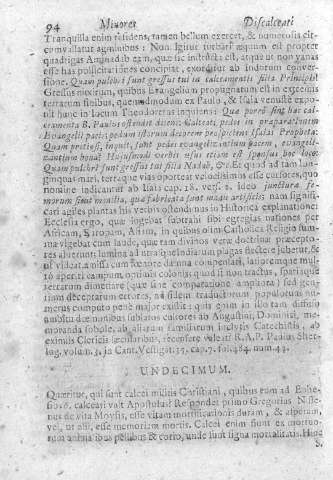 94 Minores Discalceati
Tranquilla enim residens, tamen bellum exercet, & numerosis cir-
cumvallatur agminibus: Non igitur turbari æquum est propter
quadrigas Aminadab
esse has pollicitationes concipiat, exoritur ab Indorum conver-
sione. Quam pulchri sunt gressus tui in calceamentis filia Principis!
Gressus nixirum, quibus Evangelium propugnatum est in extremis
terrarum finibus, quemadmodum ex Paulo, & Isaia venuste expo-
suit hunc in locum Theodoretus inquiens: Quæ porrò sint hæc cal-
ceamenta B. Paulus ostendit dicens: calceati pedes in præparationem
Evangelii pacis: pedum istorum decorem prospiciens Isaias Propheta:
Quam pretiosi, inquit, sunt pedes evangelizantium pacem, evangeli-
zantium bona? Hujusmodi verbis usus etiam est sponsus hoc loco:
Quam pulchri sunt gressus tui filia Nadab, &c. Et quod ad tam lon-
ginquas mari, terraque vias oporteat velocissimos esse cursores, quo
nomine indicantur ab Isaia cap. 18. vers. 2. ideo junctura fe-
morum sicut monilia, quæ fabricata sunt manu artificis; nam signifi-
cari agiles plantas his verbis ostendimus in Historica explanatione:
Ecclesia ergo, quæ lugebat subtrahi sibi egregias nationes per
Africam, Europam, Asiam, in quibus olim Catholica Religio sum-
ma vigebat cum laude, quæ tam divinos veræ doctrinæ præcepto-
res aluerunt: lumina ad utramque Indiarum plagas flectere jubetur, &
ut videat amissa cum fœnore damna compensari, latioremque mul-
tò aperiri campum, optimis colonis; quod si non tractus, spatiaque
terrarum dimetiare (quæ sine comparatione ampliora) sed gen-
tium deceptarum errores, ad fidem traductorum populorum nu-
merus computo penè major existit: quis enim in isto tam diffuso
Augustini, Dominici, me-
moranda sobole, ab aliarum familiarum inclytis Catechistis, ab
eximiis Clericis sæcularibus, recensere valeat? R. A. P. Paulus Sher-
log. volum. 3. in Cant. Vestigat. 35. cap. 7. fol. 484. num. 43.
UNDECIMUM.
Quæritur, qui sunt calcei militis Christiani, quibus eum ad Ephe-
sios 6. calceari vult Apostolus? Respondet primo Gregorius Nisse-
nus de vita Moysis, esse vitam mortificationis duram, & asperam,
vel, ut alii, esse memoriam mortis. Calcei enim sunt ex mortuo-
rum animalibus pellibus & corio, unde sunt signa mortalitatis. Hinc
S.